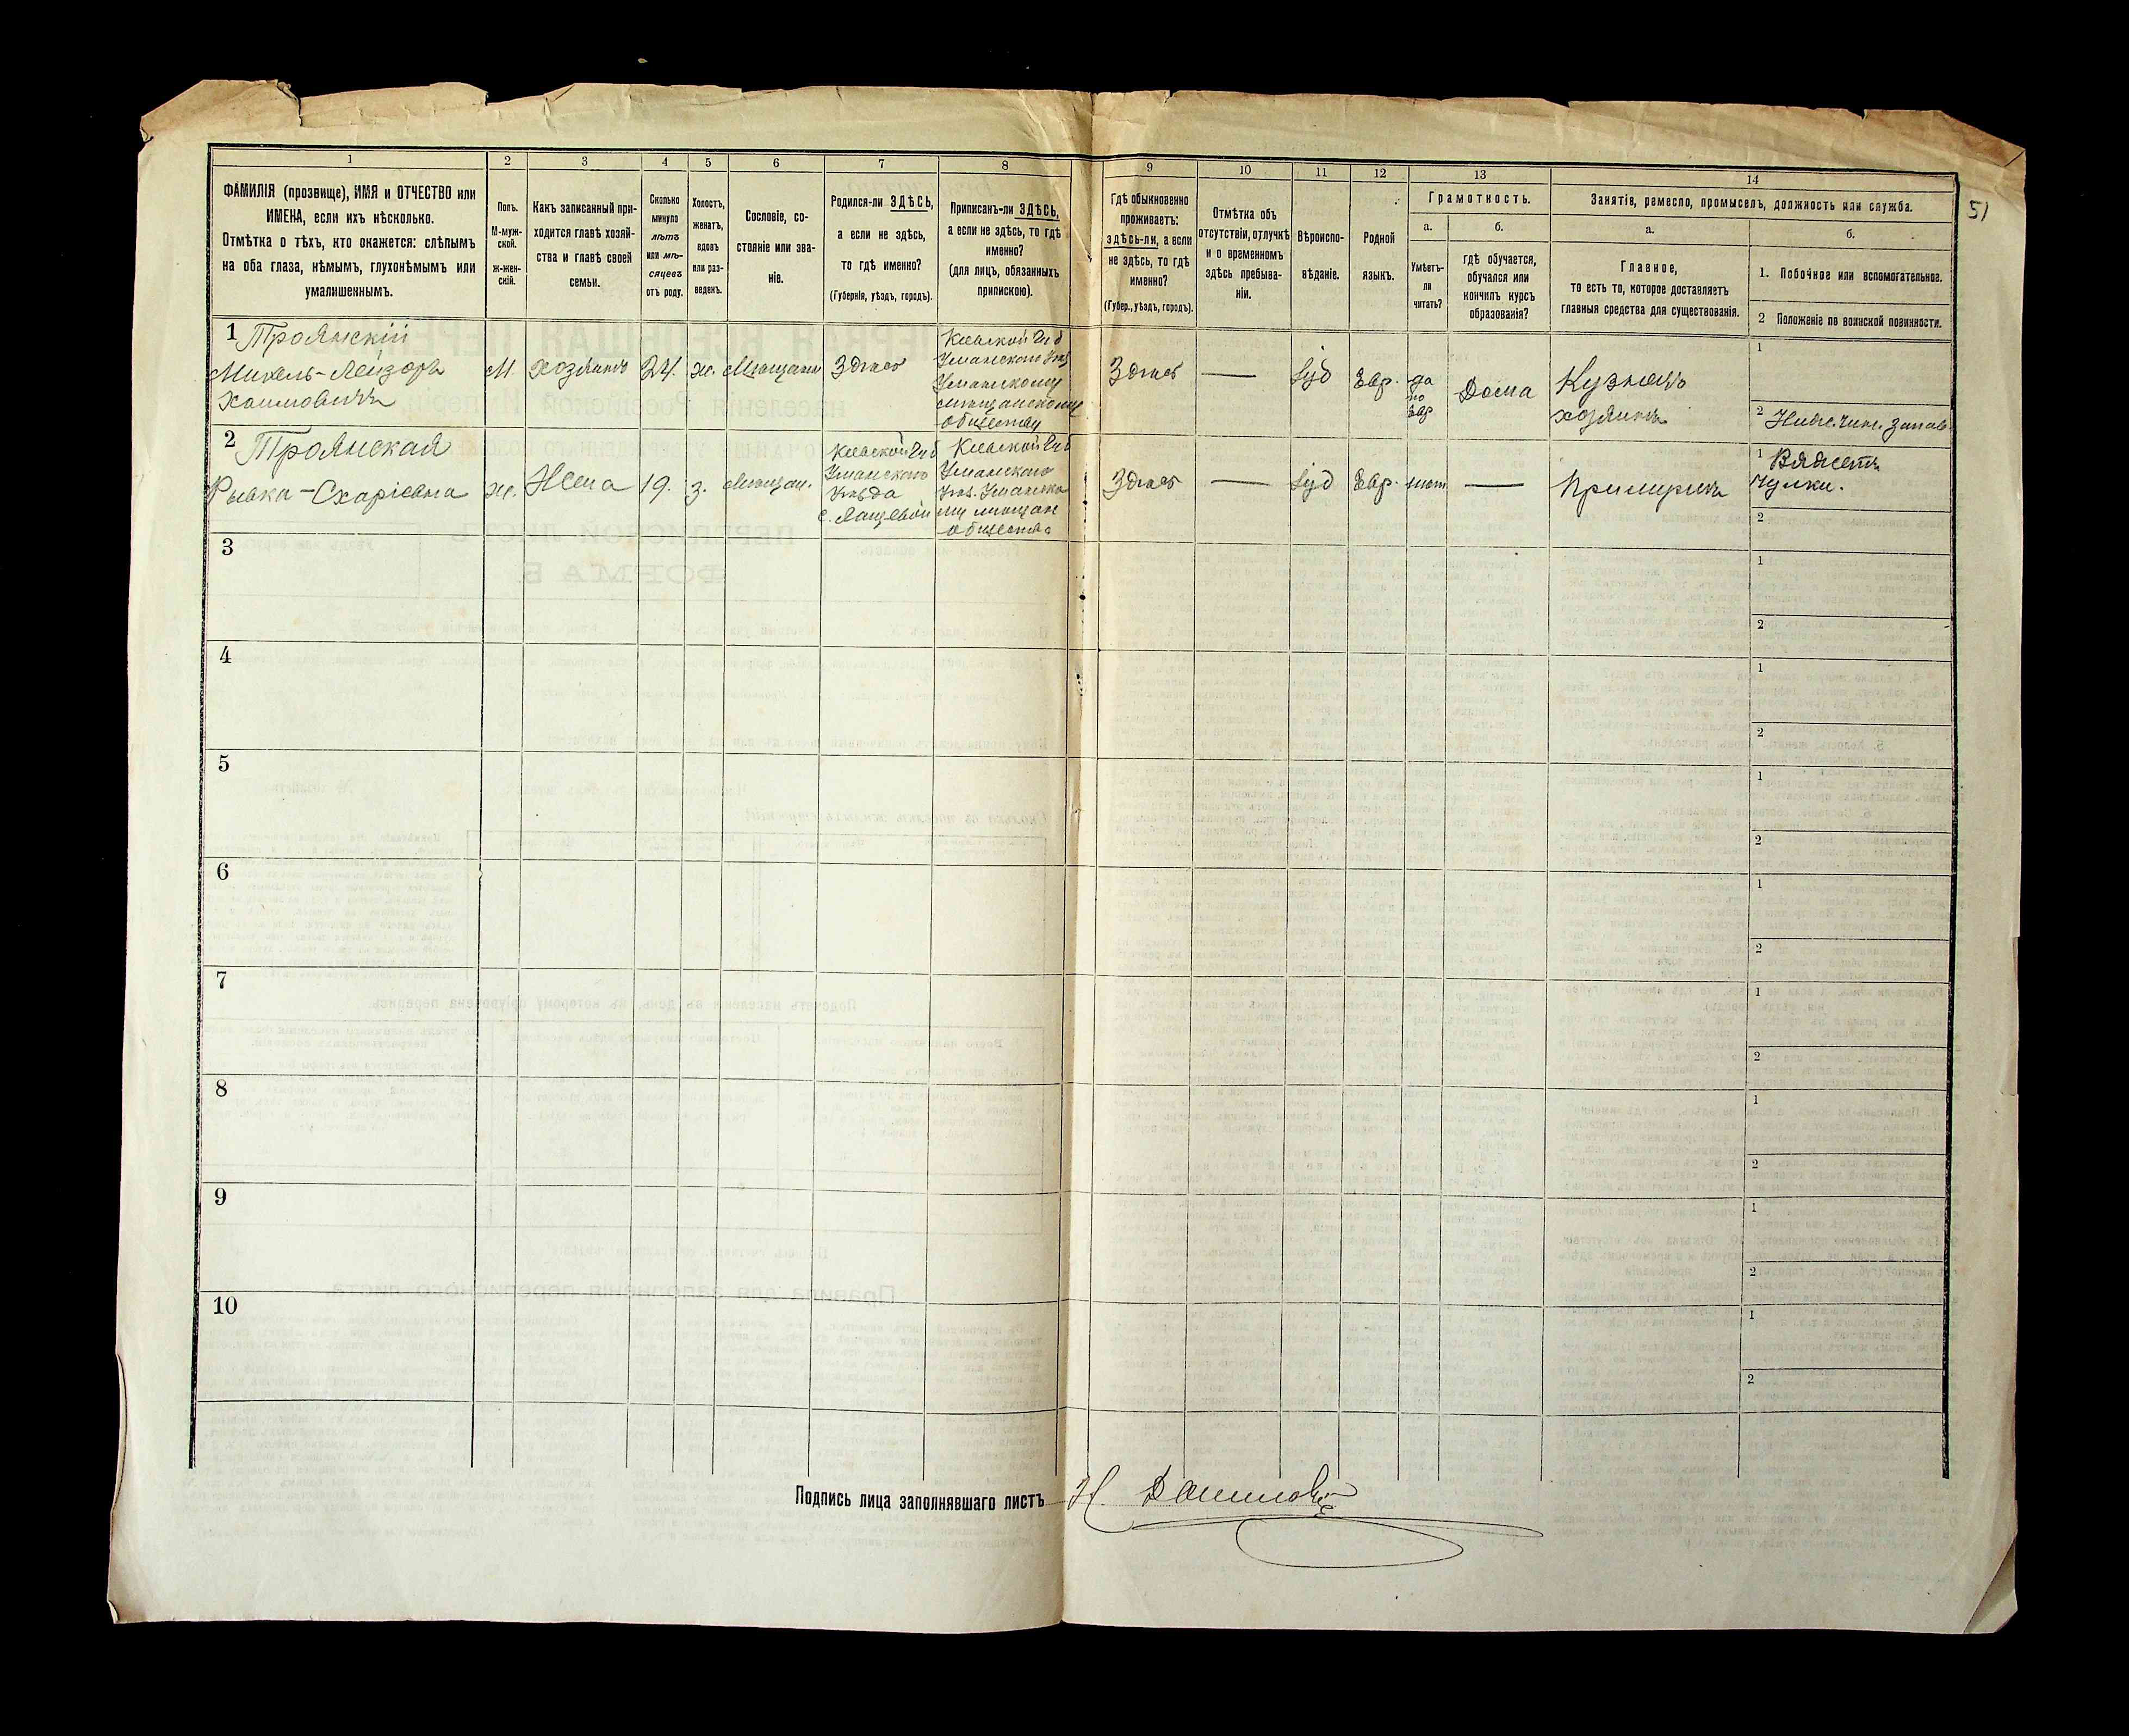 51
1
2
3
4
5
6
7
8
9
10
11
12
13
14
ФАМИЛІЯ (прозвище), ИМЯ и ОТЧЕСТВО или
ИМЕНА, если ихъ нѣсколько.
Отмѣтка о тѣхъ, кто окажется: слѣпымъ
на оба глаза, нѣмымъ, глухонѣмымъ или
умалишеннымъ.
Полъ.
М-муж-
ской.
ж-жен-
скій.
Какъ записанный при-
ходится главѣ хозяй-
ства и главѣ своей
семьи.
Сколько
минуло
лѣтъ
или мѣ-
сяцевъ
отъ роду.
Холостъ,
женатъ,
вдовъ
или раз-
веденъ.
Сословіе, со-
стояніе или зва-
ніе.
Родился-ли ЗДѢСЬ,
а если не здѣсь,
то гдѣ именно?
(Губернія, уѣздъ, городъ).
Приписанъ-ли ЗДѢСЬ,
а если не здѣсь, то гдѣ
именно?
(для лицъ, обязанныхъ
припискою).
Гдѣ обыкновенно
проживаетъ:
ЗДѢСЬ-ЛИ, а если
не здѣсь, то гдѣ
именно?
(Губер., уѣздъ, городъ).
Отмѣтка объ
отсутствіи, отлучкѣ
и о временномъ
здѣсь пребыва-
ніи.
Вѣроиспо-
вѣданіе.
Родной
языкъ.
Грамотность.
а.
Умѣетъ-
ли
читать?
б.
гдѣ обучается,
обучался или
кончилъ курсъ
образованія?
Занятіе, ремесло, промыселъ, должность или служба.
а.
Главное,
то есть то, которое доставляетъ
главныя средства для существованія.
б.
1. Побочное или вспомогательное.
2 Положеніе по воинской повинности.
1 Троянскій
Михель-Лейзоръ
Хаимовичъ
М.
хозяинъ
24.
ж.
Мѣщанин
Здѣсь
Кіевской Губ
Уманскаго Уѣз
Уманскому
мѣщанскому
обществу
Здѣсь
—
Іуд
Евр.
да
по
Евр
Дома
Кузнецъ
хозяинъ
1
2
2 Троянская
Рывка-Схаріевна
ж.
Жена
19.
з.
мѣщан.
Кіевской Губ
Уманскаго
Уѣзда
Кіевской Губ
Уманскаго
Уѣз. Уманско
му мѣщан
обществу
Здѣсь
—
Іуд
Евр.
нѣт
—
Примужъ
1 Вяжетъ
чулки.
2
3
1
2
4
1
2
5
1
2
6
1
2
7
1
2
8
1
2
9
1
2
10
1
2
Подпись лица заполнявшаго листъ